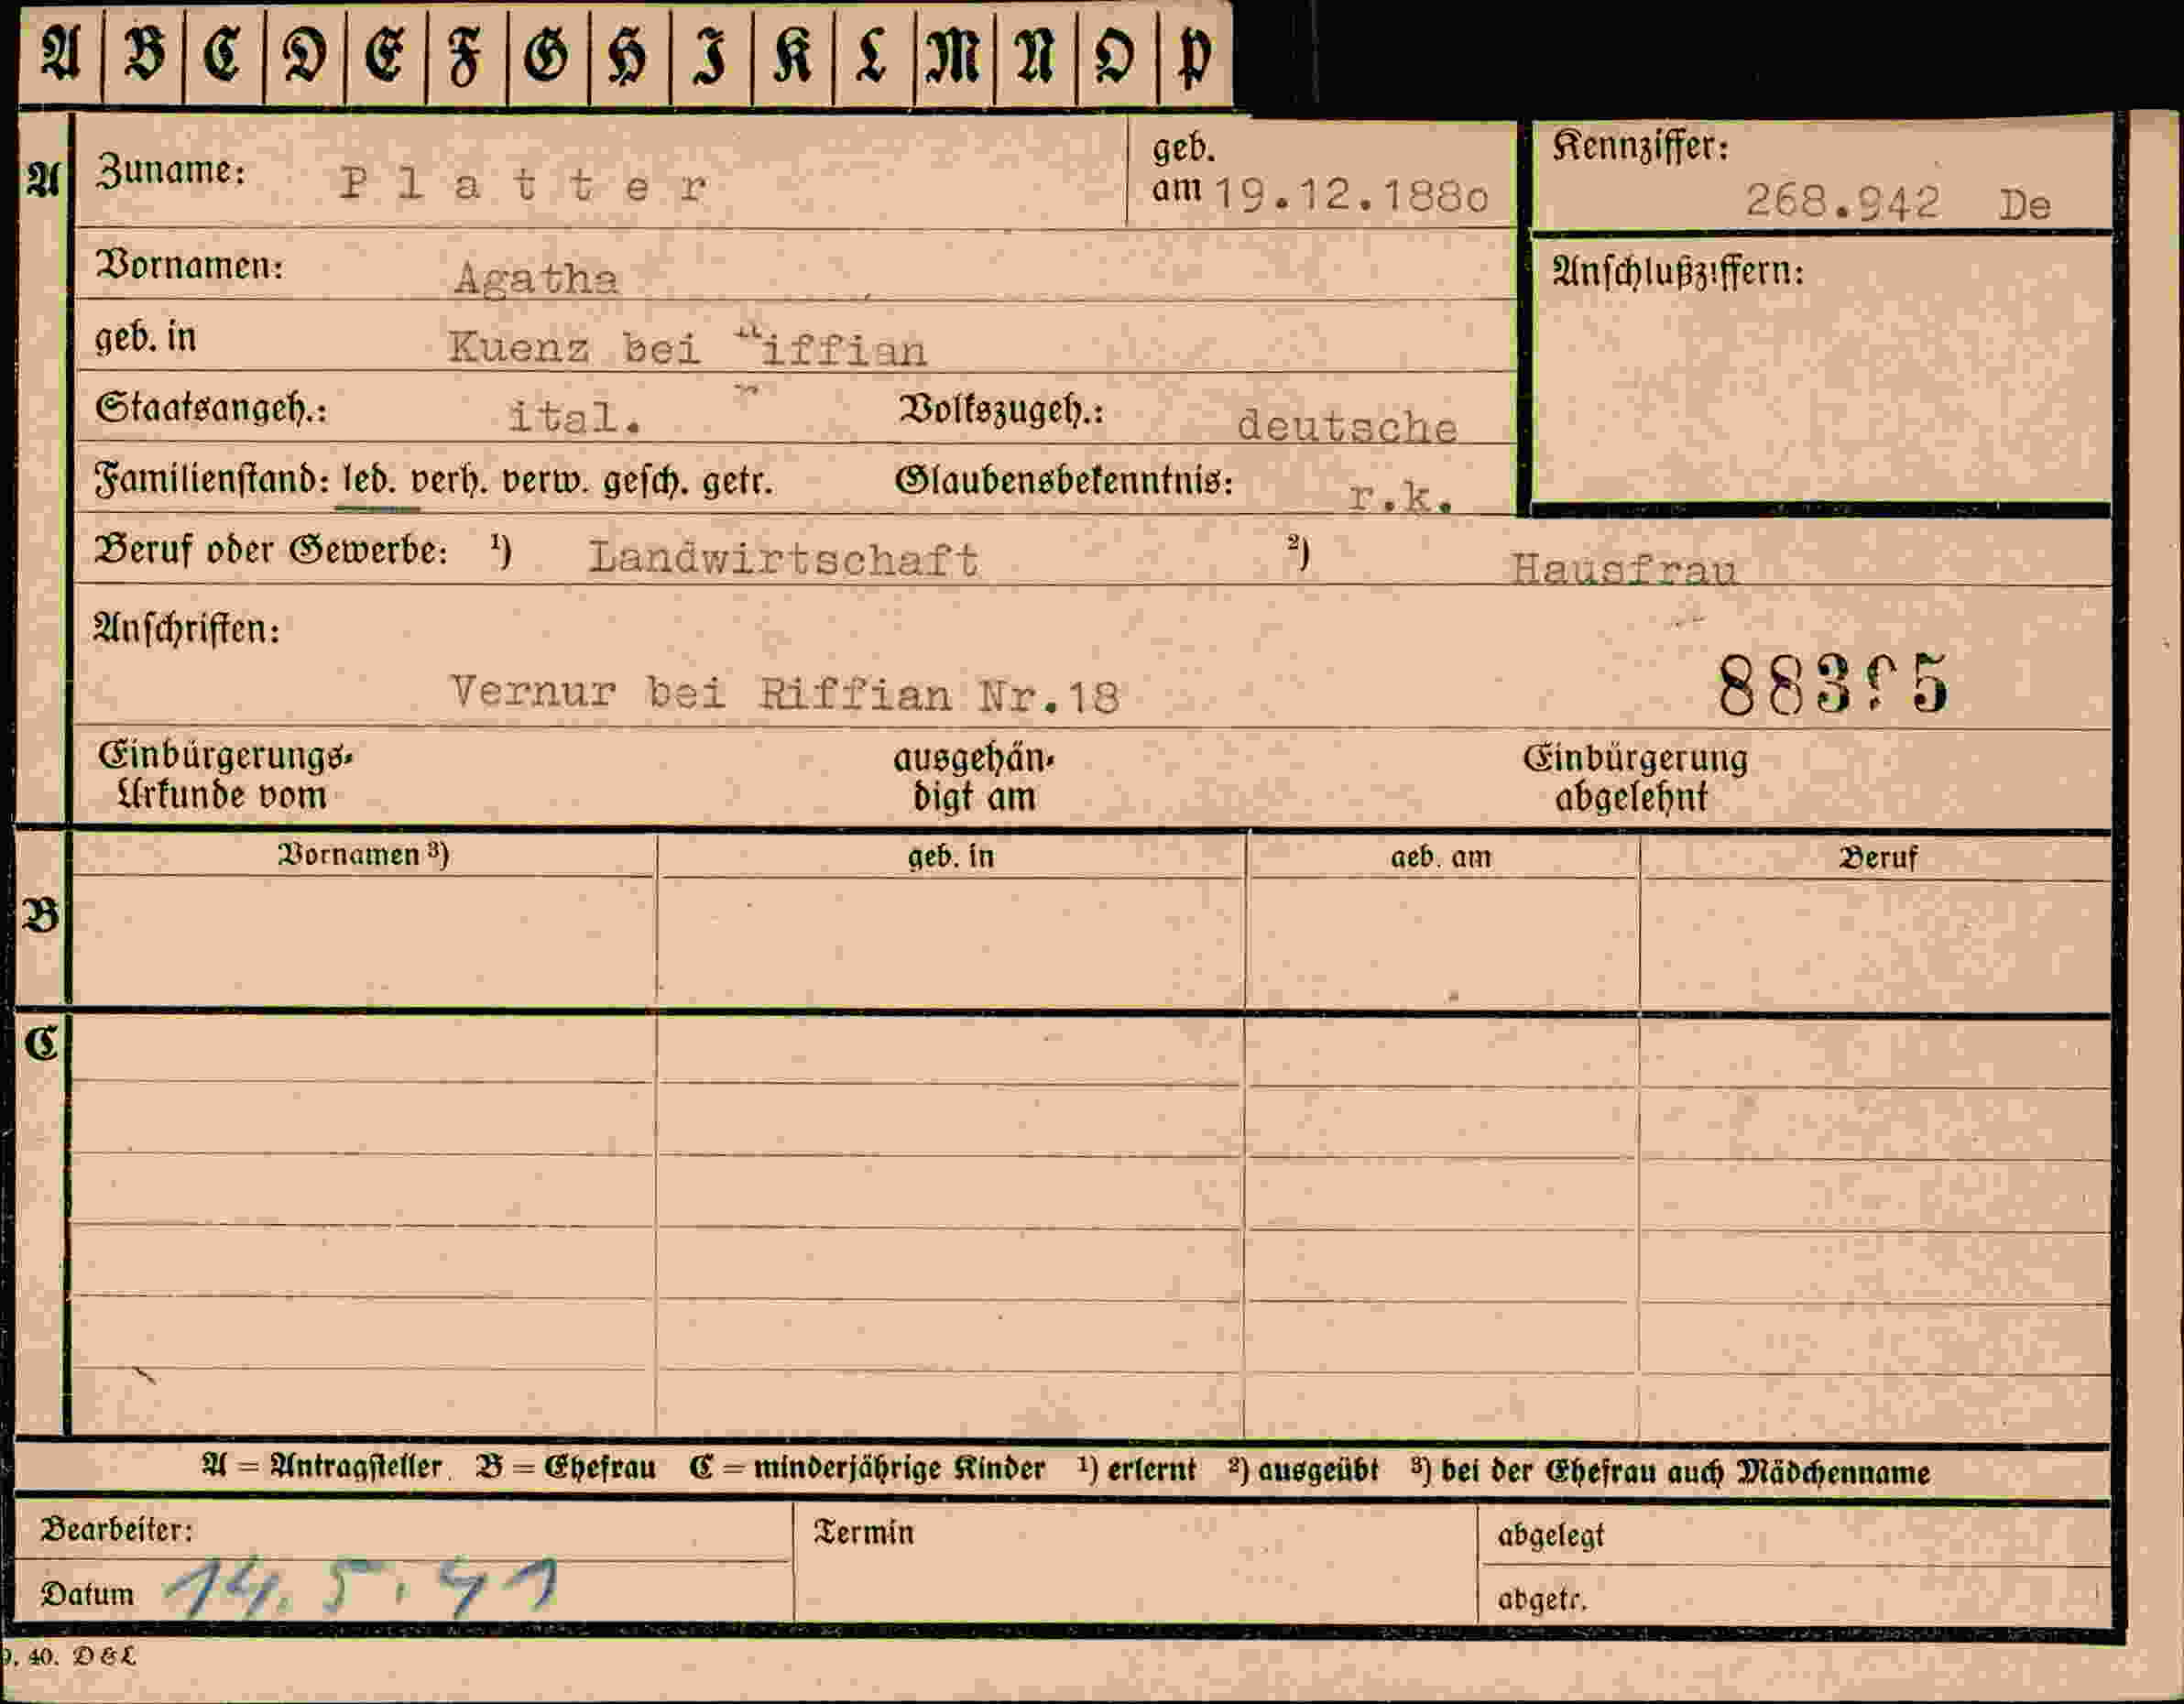 A B C D E F G H I K L M N O P
A Zuname: Platter geb. am 19.12.1880 Kennziffer: 268.942 De
Vornamen: Agatha Anschlußziffern:
geb. in Kuenz bei
Staatsangeh.: ital. Volkszugeh.: deutsche
Familienstand: led. verh. verw. gesch. getr. Glaubensbekenntnis: r.k.
Beruf oder Gewerbe: 1) Landwirtschaft 2) Hausfrau
Anschriften:
Vernur bei Riffian Nr.18
Einbürgerungs-Urkunde vom ausgehändigt am Einbürgerung abgelehnt
Vornamen 3) geb. in geb. am Beruf
B
C
A = Antragsteller. B = Ehefrau C = minderjährige Kinder 1) erlernt 2) ausgeübt 3) bei der Ehefrau auch Mädchenname
Bearbeiter: Termin abgelegt
Datum 14.5.41 abgetr.
40. D&L